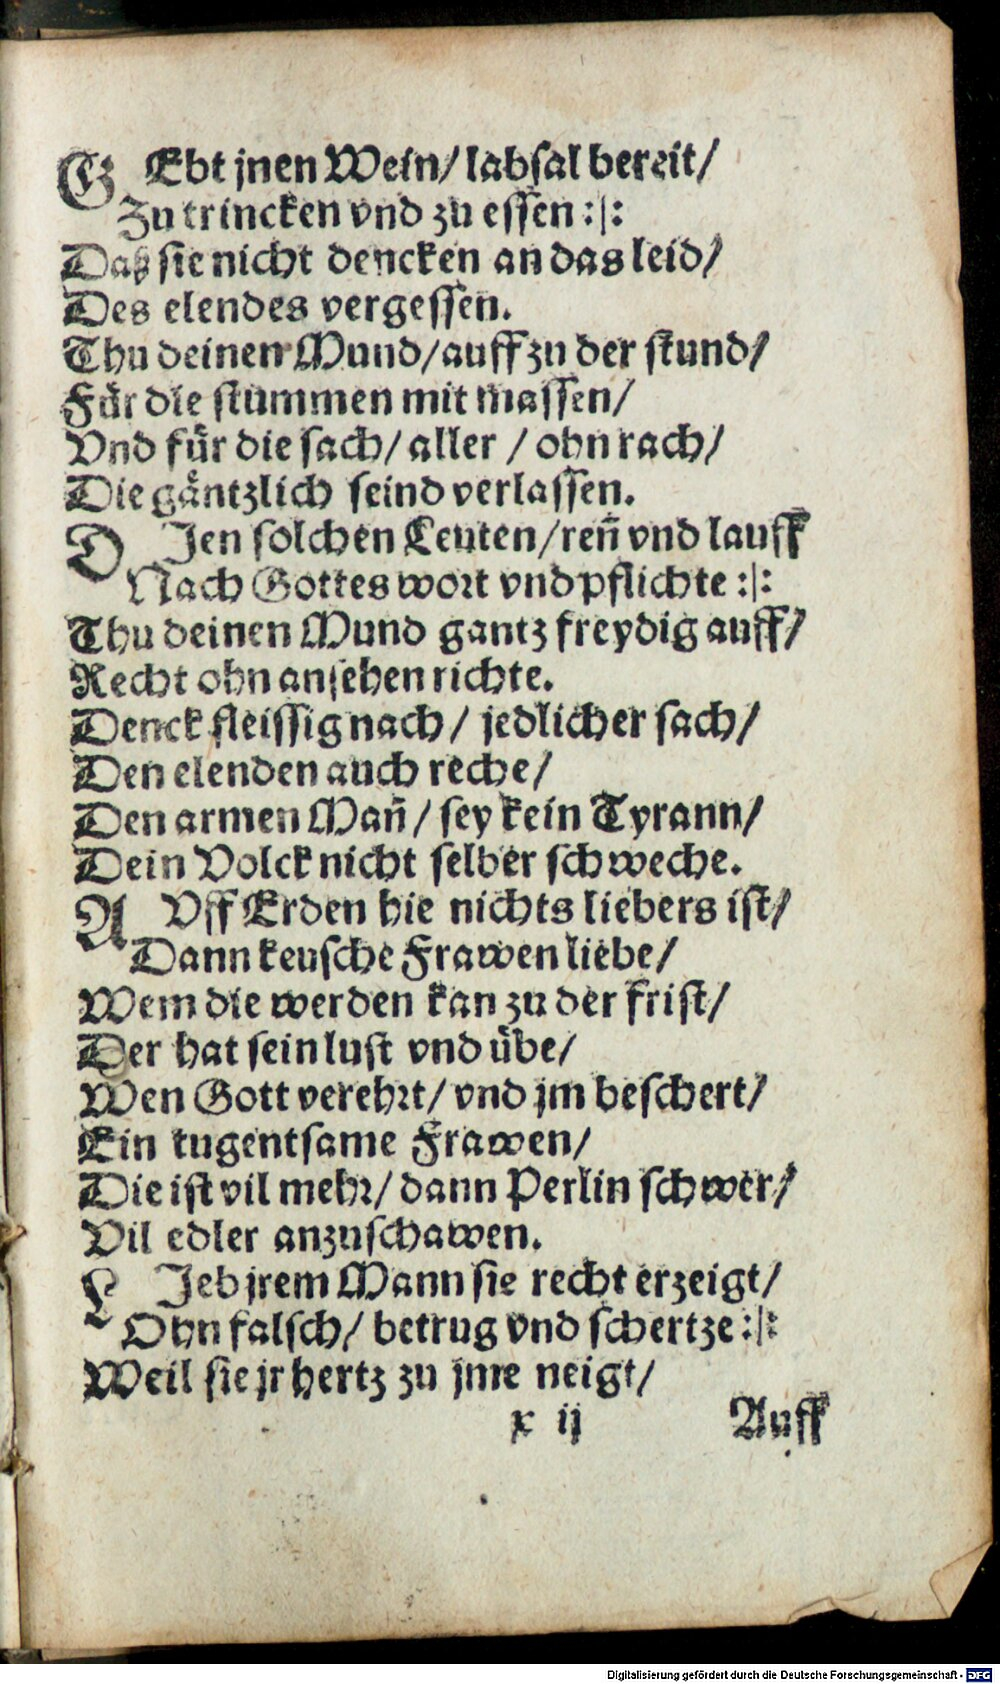 GEbt jnen Wein/ labsal bereit/
Zu trincken vnd zu essen :|:
Daß sie nicht dencken an das leid/
Des elendes vergessen.
Thu deinen Mund/ auff zu der stund/
Für die stummen mit massen/
Vnd für die sach/ aller / ohn rach/
Die gäntzlich seind verlassen.
DJen solchen Leuten/ ren̄ vnd lauff
Nach Gottes wort vnd pflichte :|:
Thu deinen Mund gantz freydig auff/
Recht ohn ansehen richte.
Denck fleissig nach/ jedlicher sach/
Den elenden auch reche/
Den armen Man̄/ sey kein Tyrann/
Dein Volck nicht selber schweche.
AVff Erden hie nichts liebers ist/
Dann keusche Frawen liebe/
Wem die werden kan zu der frist/
Der hat sein lust vnd übe/
Wen Gott verehrt/ vnd jm beschert/
Ein tugentsame Frawen/
Die ist vil mehr/ dann Perlin schwer/
Vil edler anzuschawen.
LJeb jrem Mann sie recht erzeigt/
Ohn falsch/ betrug vnd schertze :|:
Weil sie jr hertz zu jme neigt/
x ij Auff
Digitalisierung gefördert durch die Deutsche Forschungsgemeinschaft - DFG